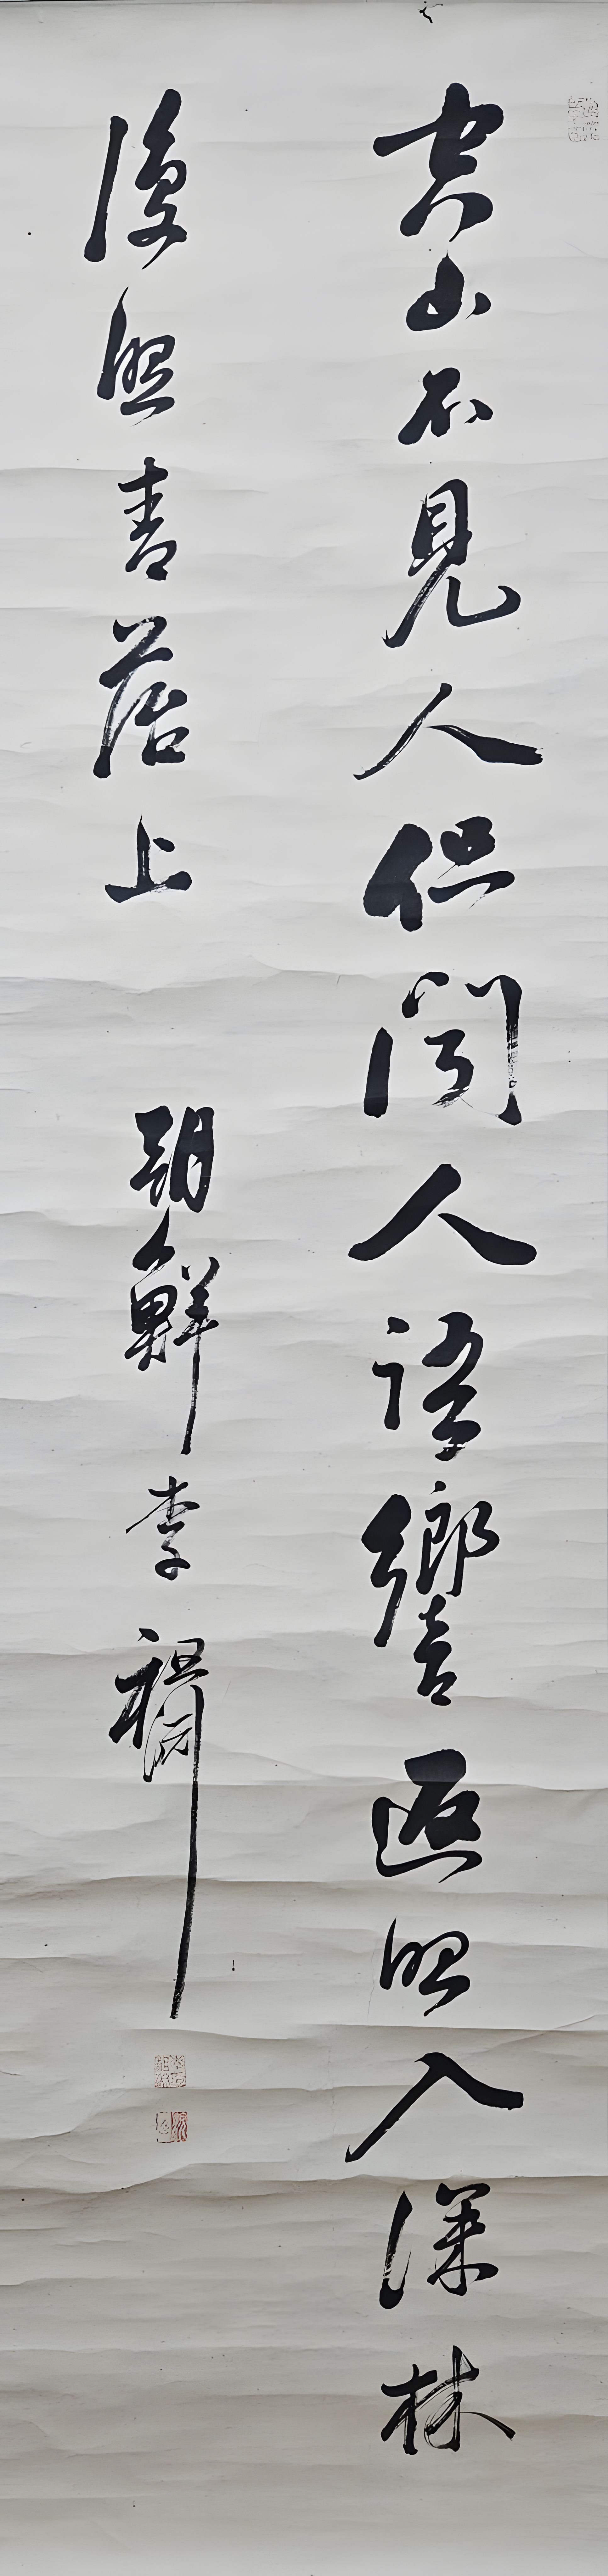 空山不見人但聞人語響返照入深林
復照青苔上
朝鮮李祖淵